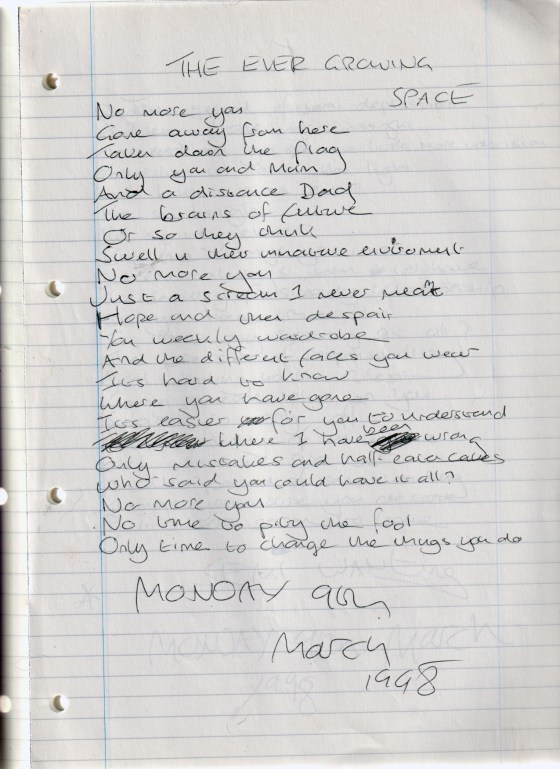 THE EVER GROWING
SPACE
No more you
Gone away from here
Taken down the flag
Only you and Mum
And a distance Dad
The brains of future
Or so they think
Swell in their innovative enviroment
No more you
Just a scream I never meant
Hope and then despair
You weekly wardrobe
And the different faces you wear
It's hard to know
Where you have gone
It's easier for you to understand
where I have been wrong
Only mistakes and half-eaten cakes
Who said you could have it all?
No more you
No time to pity the fool
Only time to change the things you do
MONDAY 9th
March
1998